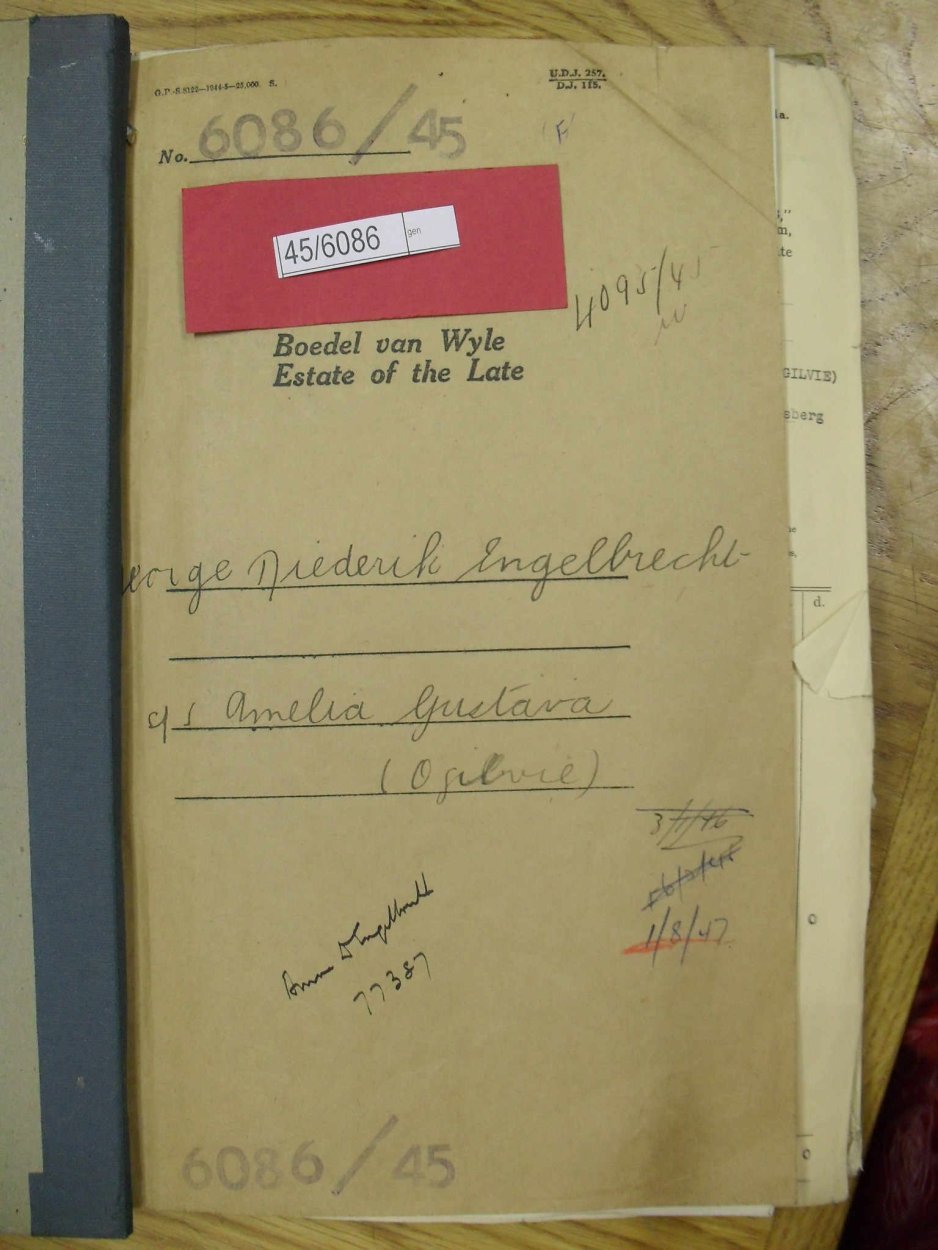 G.P.-S.8122—1944-5—25,000. S.
U.D.J. 257.
D.J. 115.
No. 6086/45
'F'
45/6086 gen
4095/45
Boedel van Wyle
Estate of the Late
eorge Diederik Engelbrecht
s/s Amelia Gustava
(Ogilvie)
3/1/46
1/8/47
77387
6086/45
la.
,"
m,
te
GILVIE)
sberg
d.